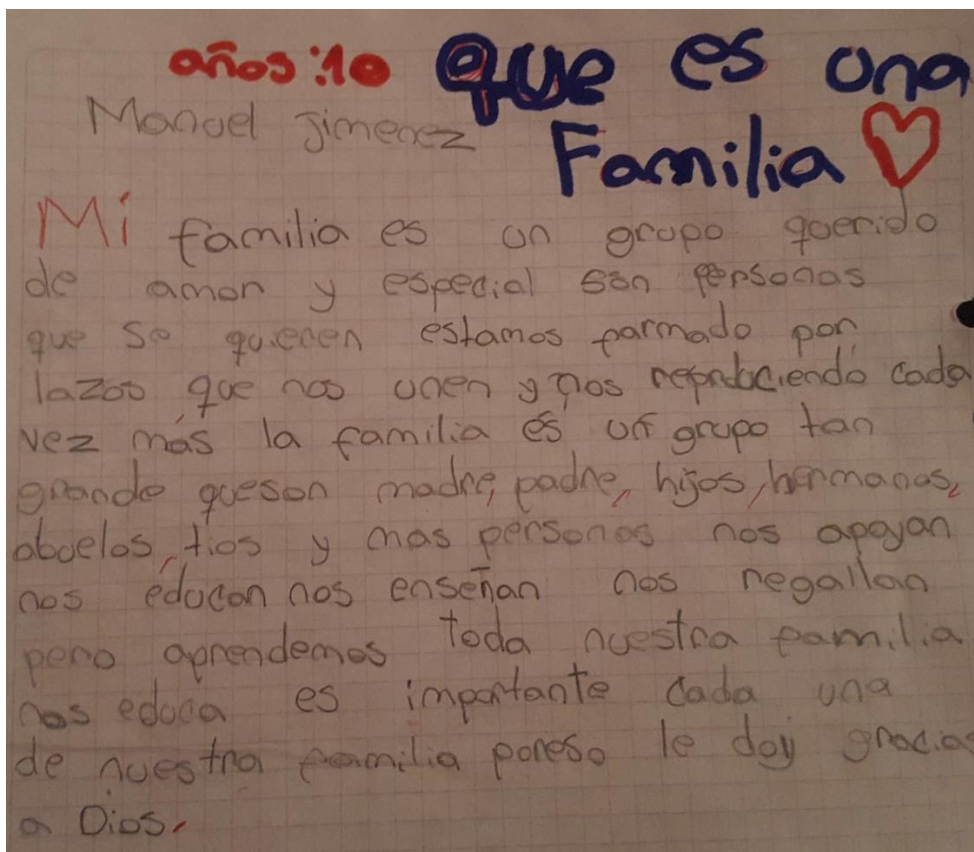 años:10 que es una
Manuel Jimenez Familia
Mi familia es un grupo querido
de amor y especial son personas
que se quieren estamos formado por
lazos que nos unen y nos reproduciendo cada
vez más la familia es un grupo tan
grande queson madre, padre, hijos, hermanos,
abuelos, tios y mas personas nos apoyan
nos educan nos enseñan nos regallan
pero aprendemos toda nuestra familia
nos educa es importante cada una
de nuestra familia poreso le doy gracias
a Dios.